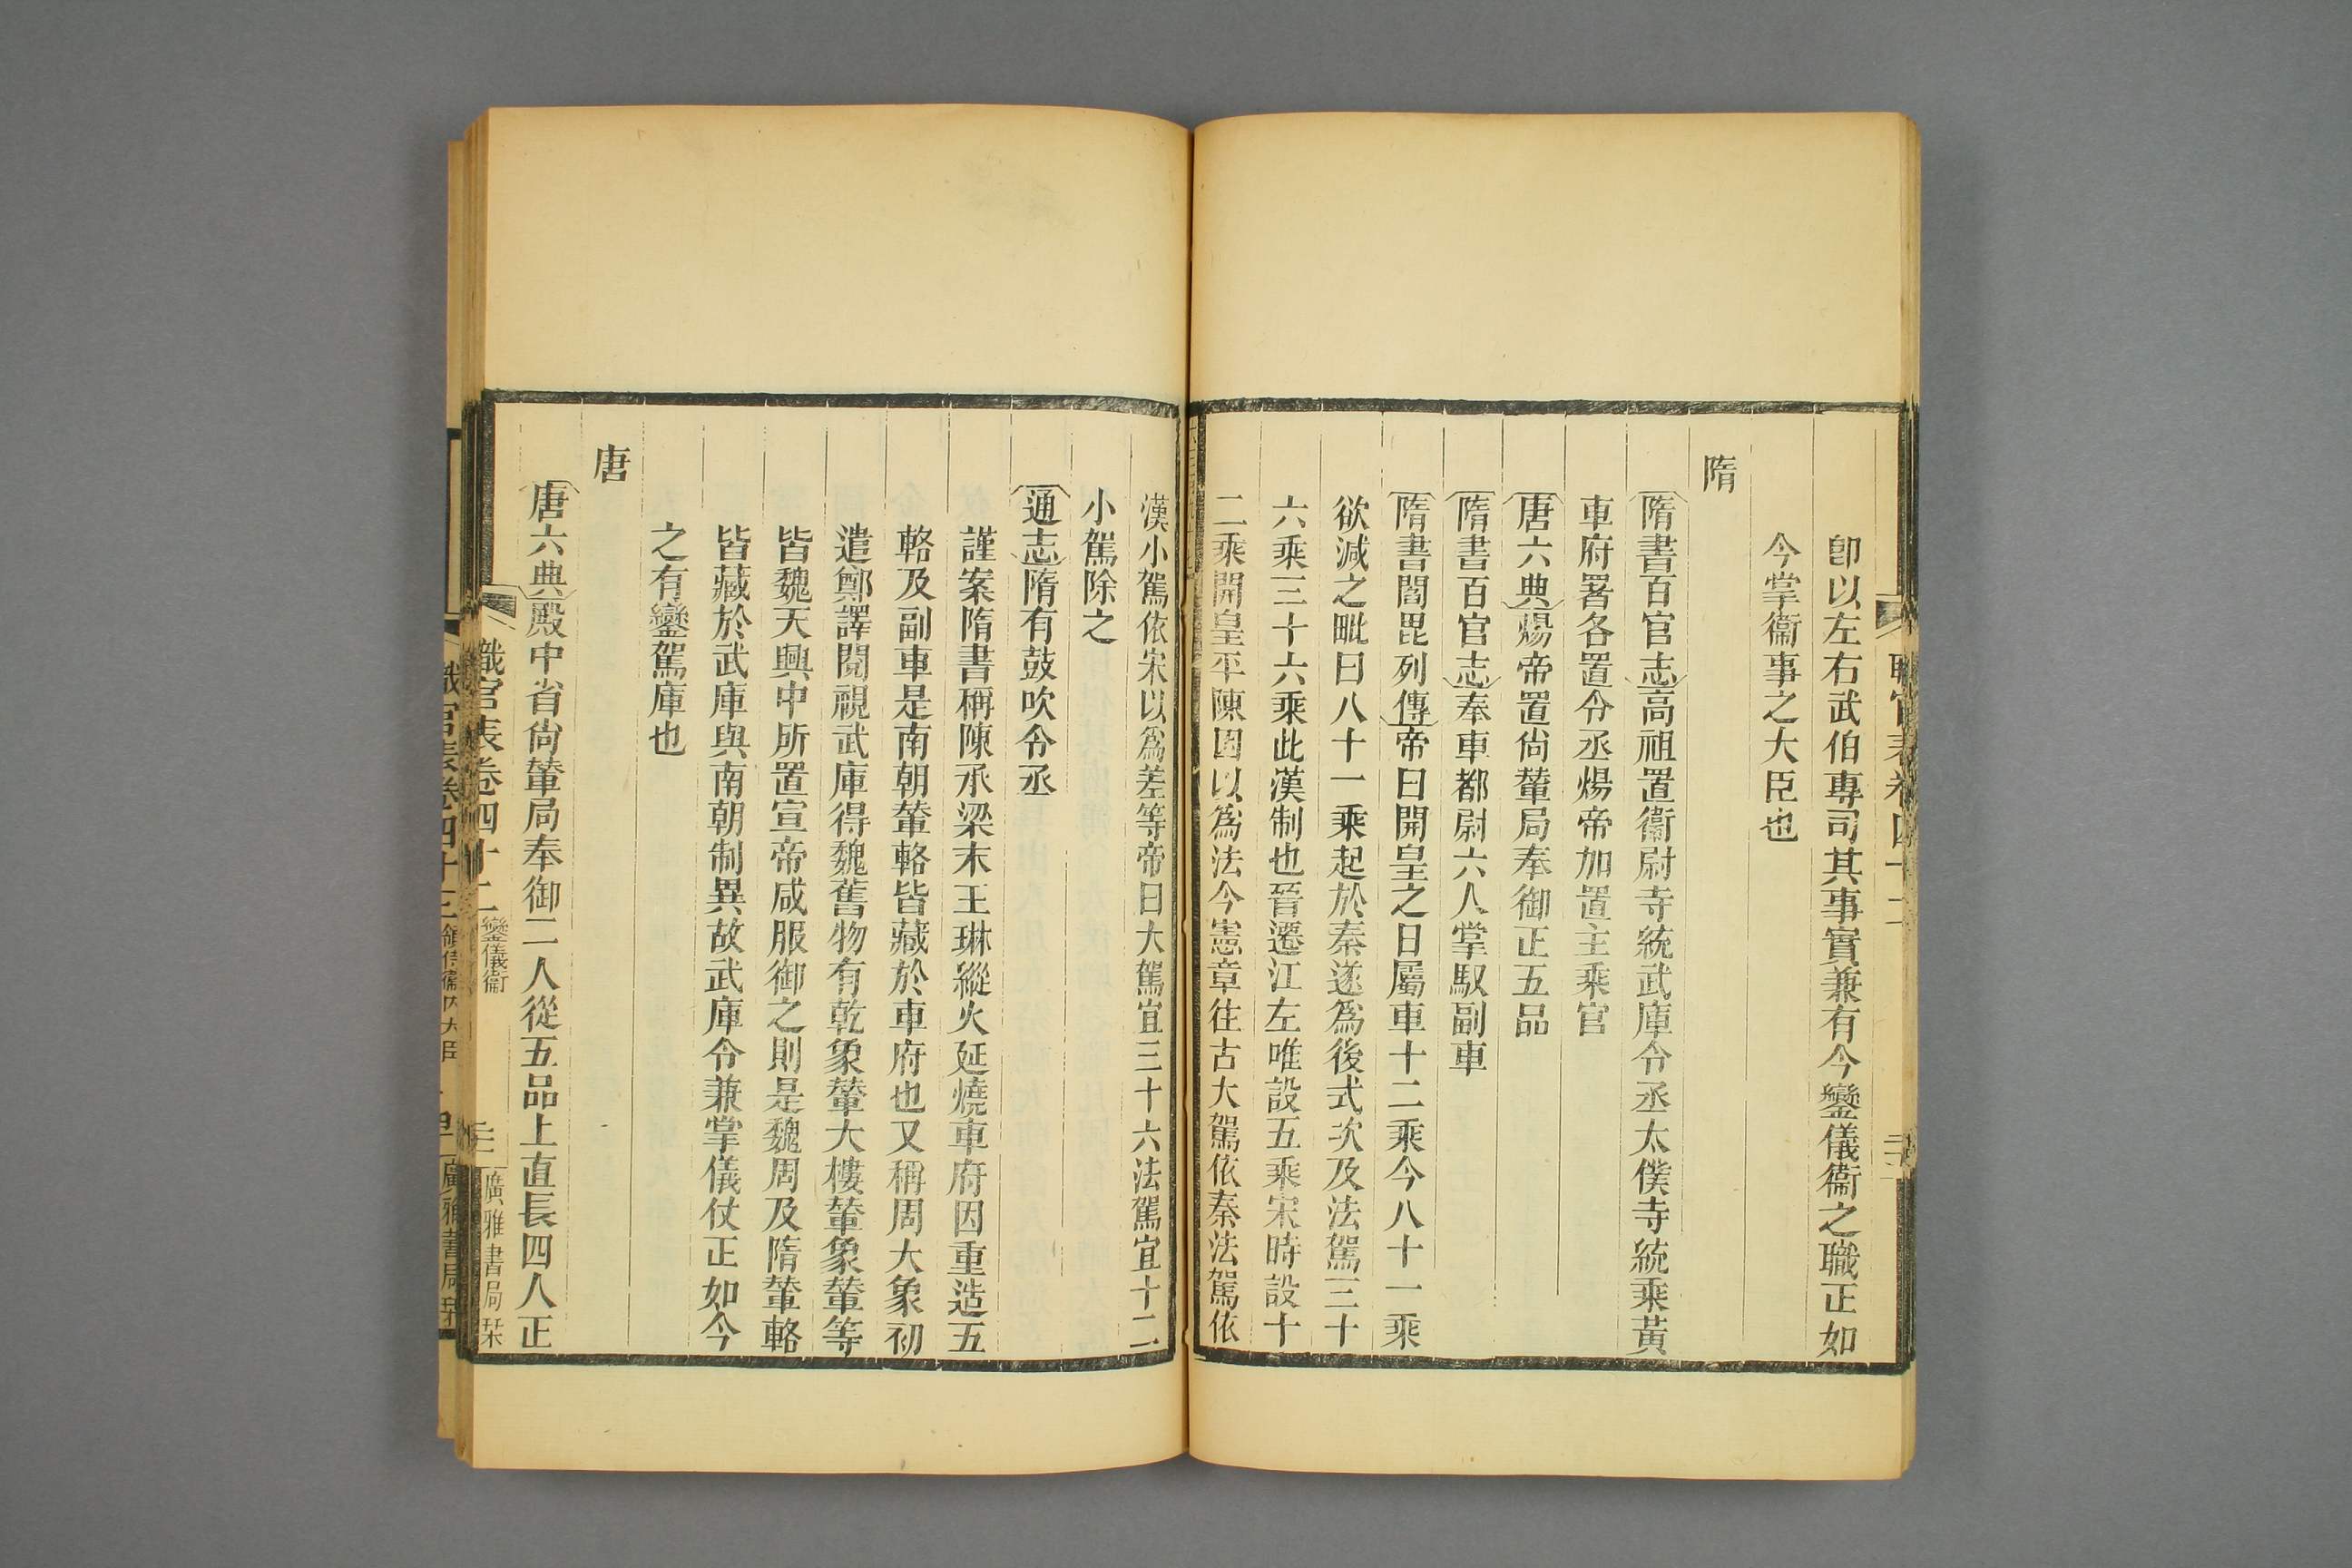 卽以左右武伯專司其事實兼有今鑾儀衞之職正如
今掌衞事之大臣也
隋
隋書百官志高祖置衞尉寺統武庫令丞太僕寺統乘黃
車府署各置令丞煬帝加置主乘官
唐六典煬帝置尙輦局奉御正五品
隋書百官志奉車都尉六人掌馭副車
隋書閻毘列傳帝曰開皇之日屬車十二乘今八十一乘
欲減之毗曰八十一乘起於秦遂爲後式次及法駕三十
六乘三十六乘此漢制也晉遷江左唯設五乘宋時設十
二乘開皇平陳因以爲法今憲章往古大駕依秦法駕依
漢小駕依宋以爲差等帝曰大駕宜三十六法駕宜十二
小駕除之
通志隋有鼓吹令丞
謹案隋書稱陳承梁末王琳縱火延燒車府因重造五
輅及副車是南朝輦輅皆藏於車府也又稱周大象初
遣鄭譯閱視武庫得魏舊物有乾象輦大樓輦象輦等
皆魏天興中所置宣帝咸服御之則是魏周及隋輦輅
皆藏於武庫與南朝制異故武庫令兼掌儀仗正如今
之有鑾駕庫也
唐
唐六典殿中省尙輦局奉御二人從五品上直長四人正
職官表卷四十二 鑾儀衞 廣雅書局栞